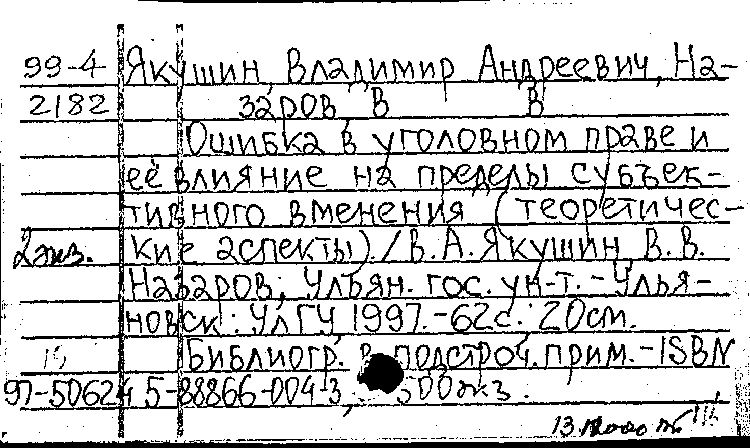 99-4 Якушин, Владимир Андреевич, На-
2182 заров, В В
Ошибка в уголовном праве и
её влияние на пределы субъек-
тивного вменения (теоретичес-
2 экз. кие аспекты). / В. А. Якушин, В. В.
Назаров; Ульян. гос. ун-т. - Улья-
новск: УлГУ, 1997. - 62 с.; 20 см.
Библиогр. в подстроч. прим. - ISBN
97-50624 5-88866-004-3, 500 экз.